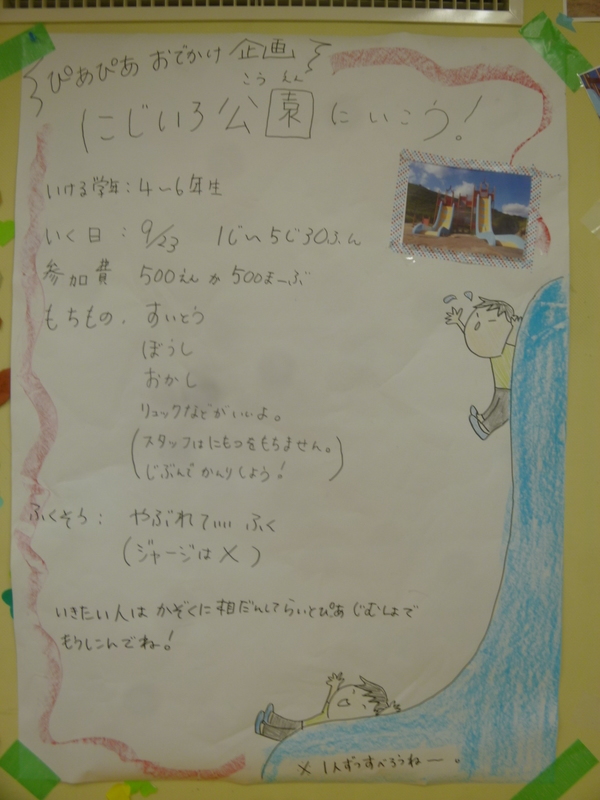 ぴあぴあ おでかけ企画
こうえん
にじいろ公園にいこう!
いける学年:4~6年生
いく日:9/23 1じ~5じ30ふん
参加費 500えんか500まーぶ
もちもの. すいとう
ぼうし
おかし
リュックなどがいいよ。
(スタッフはにもつをもちません。
じぶんでかんりしよう!)
ふくそう: やぶれていい ふく
(ジャージは×)
いきたい人は かぞくに相だんしてらいとぴあ じむしょで
もうしこんでね!
× 1人ずつすべろうねー。